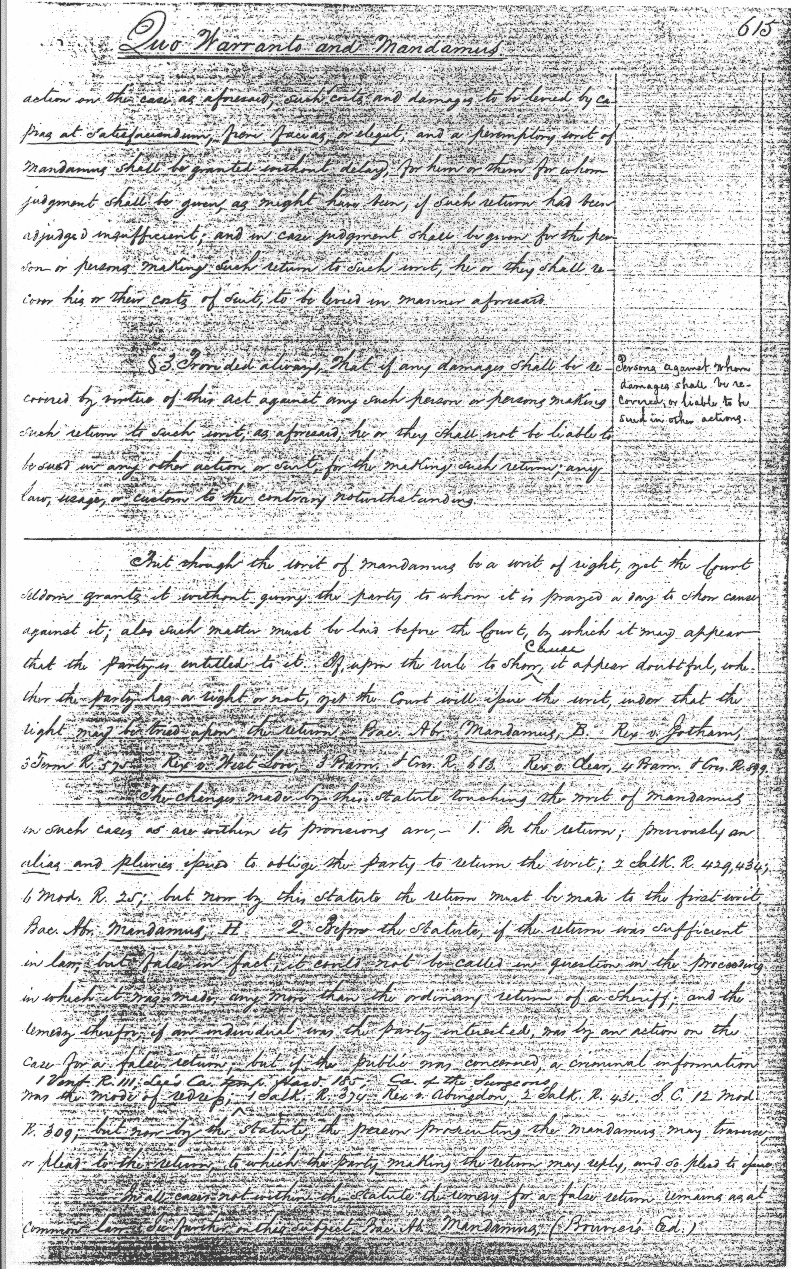 615
Quo Warranto and Mandamus.
action on the case as aforesaid, such costs and damages to be levied by ca-
pias at satisfaciendum, fieri facias, or elegit; and a peremptory writ of
Mandamus shall be granted without delay, for him or them for whom
judgment shall be given, as might have been, if such return had been
adjudged insufficient; and in case judgment shall be given for the per-
son or persons making such return to such writ, he or they shall re-
cover his or their costs of suit, to be levied in manner aforesaid.
§3. Provided always, That if any damages shall be re-
covered by virtue of this act against any such person or persons making
such return to such writ, as aforesaid, he or they shall not be liable to
be sued in any other action or suit, for the making such return; any
law, usage, or custom to the contrary notwithstanding.
Persons against whom
damages shall be re-
covered, or liable to be
sued in other actions.
But though the writ of mandamus be a writ of right, yet the Court
seldom grants it without giving the party to whom it is prayed a day to show cause
against it; also such matter must be laid before the Court, by which it may appear
that the party is entitled to it. If, upon the rule to show cause, it appear doubtful, whe
ther the party has a right or not, yet the Court will issue the writ, in order that the
right may be tried upon the return. Bac. Abr. Mandamus, B. Rex v. Gotham,
3 Term R. 575. Rex v. West Loo, 3 Barn. & Cres. R. 613. Rex v. Clear, 4 Barn. & Cres. R. 899.
The changes made by this Statute touching the writ of mandamus
in such cases as are within its provisions are,- 1. In the return; previously an
alias and pluries issued to oblige the party to return the writ; 2 Salk. R. 429, 434;
6 Mod. R. 25; but now by this statute the return must be made to the first writ,
Bac. Abr. Mandamus, H 2. Before the Statute, if the return was sufficient
in law, but false in fact, it could not be called in question in the proceeding
in which it was made, any more than the ordinary return of a Sheriff; and the
remedy therefor, if an individual was the party interested, was by an action on the
case for a false return; but if the public was concerned, a criminal information
1 Vent. R. 111; Lee's Ca. temp. Hard. 185, Ca. of the Surgeons,
was the mode of redress; 1 Salk. R. 374 Rex v. Abingdon, 2 Salk. R. 431. S. C. 12 Mod.
R. 309; but now by the Statute, the person prosecuting the mandamus may traverse
or plead to the return, to which the party making the return may reply, and so plead to issue.
In all cases not within the statute the remedy for a false return remains as at
common law. See further on this subject Bac. Ab. Mandamus, (Bouvier's Ed.)